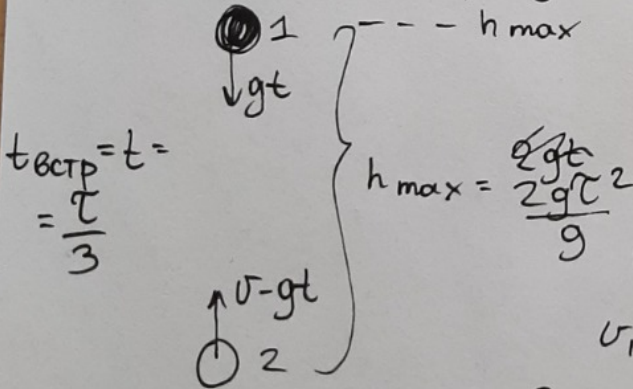 1 - - - h max
gt
t встр = t =
= τ/3
2gt
h max = 2gτ²/9
υ-gt
2
υ